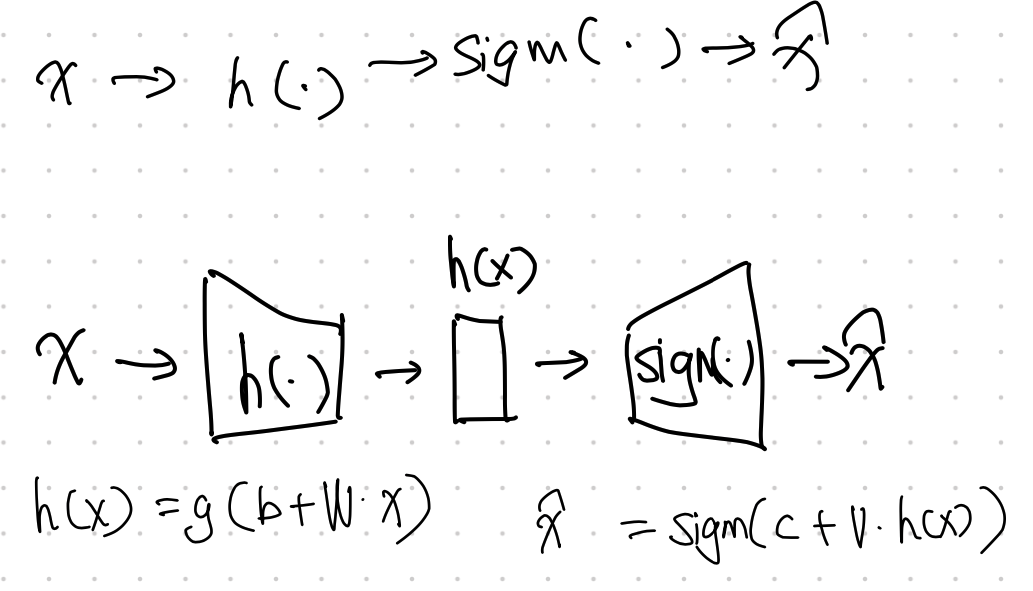 x → h(·) → sigm(·) → x̂
h(x)
x → h(·) → → sigm(·) → x̂
h(x) = g(b+W·x)  x̂ = sigm(c + V·h(x))